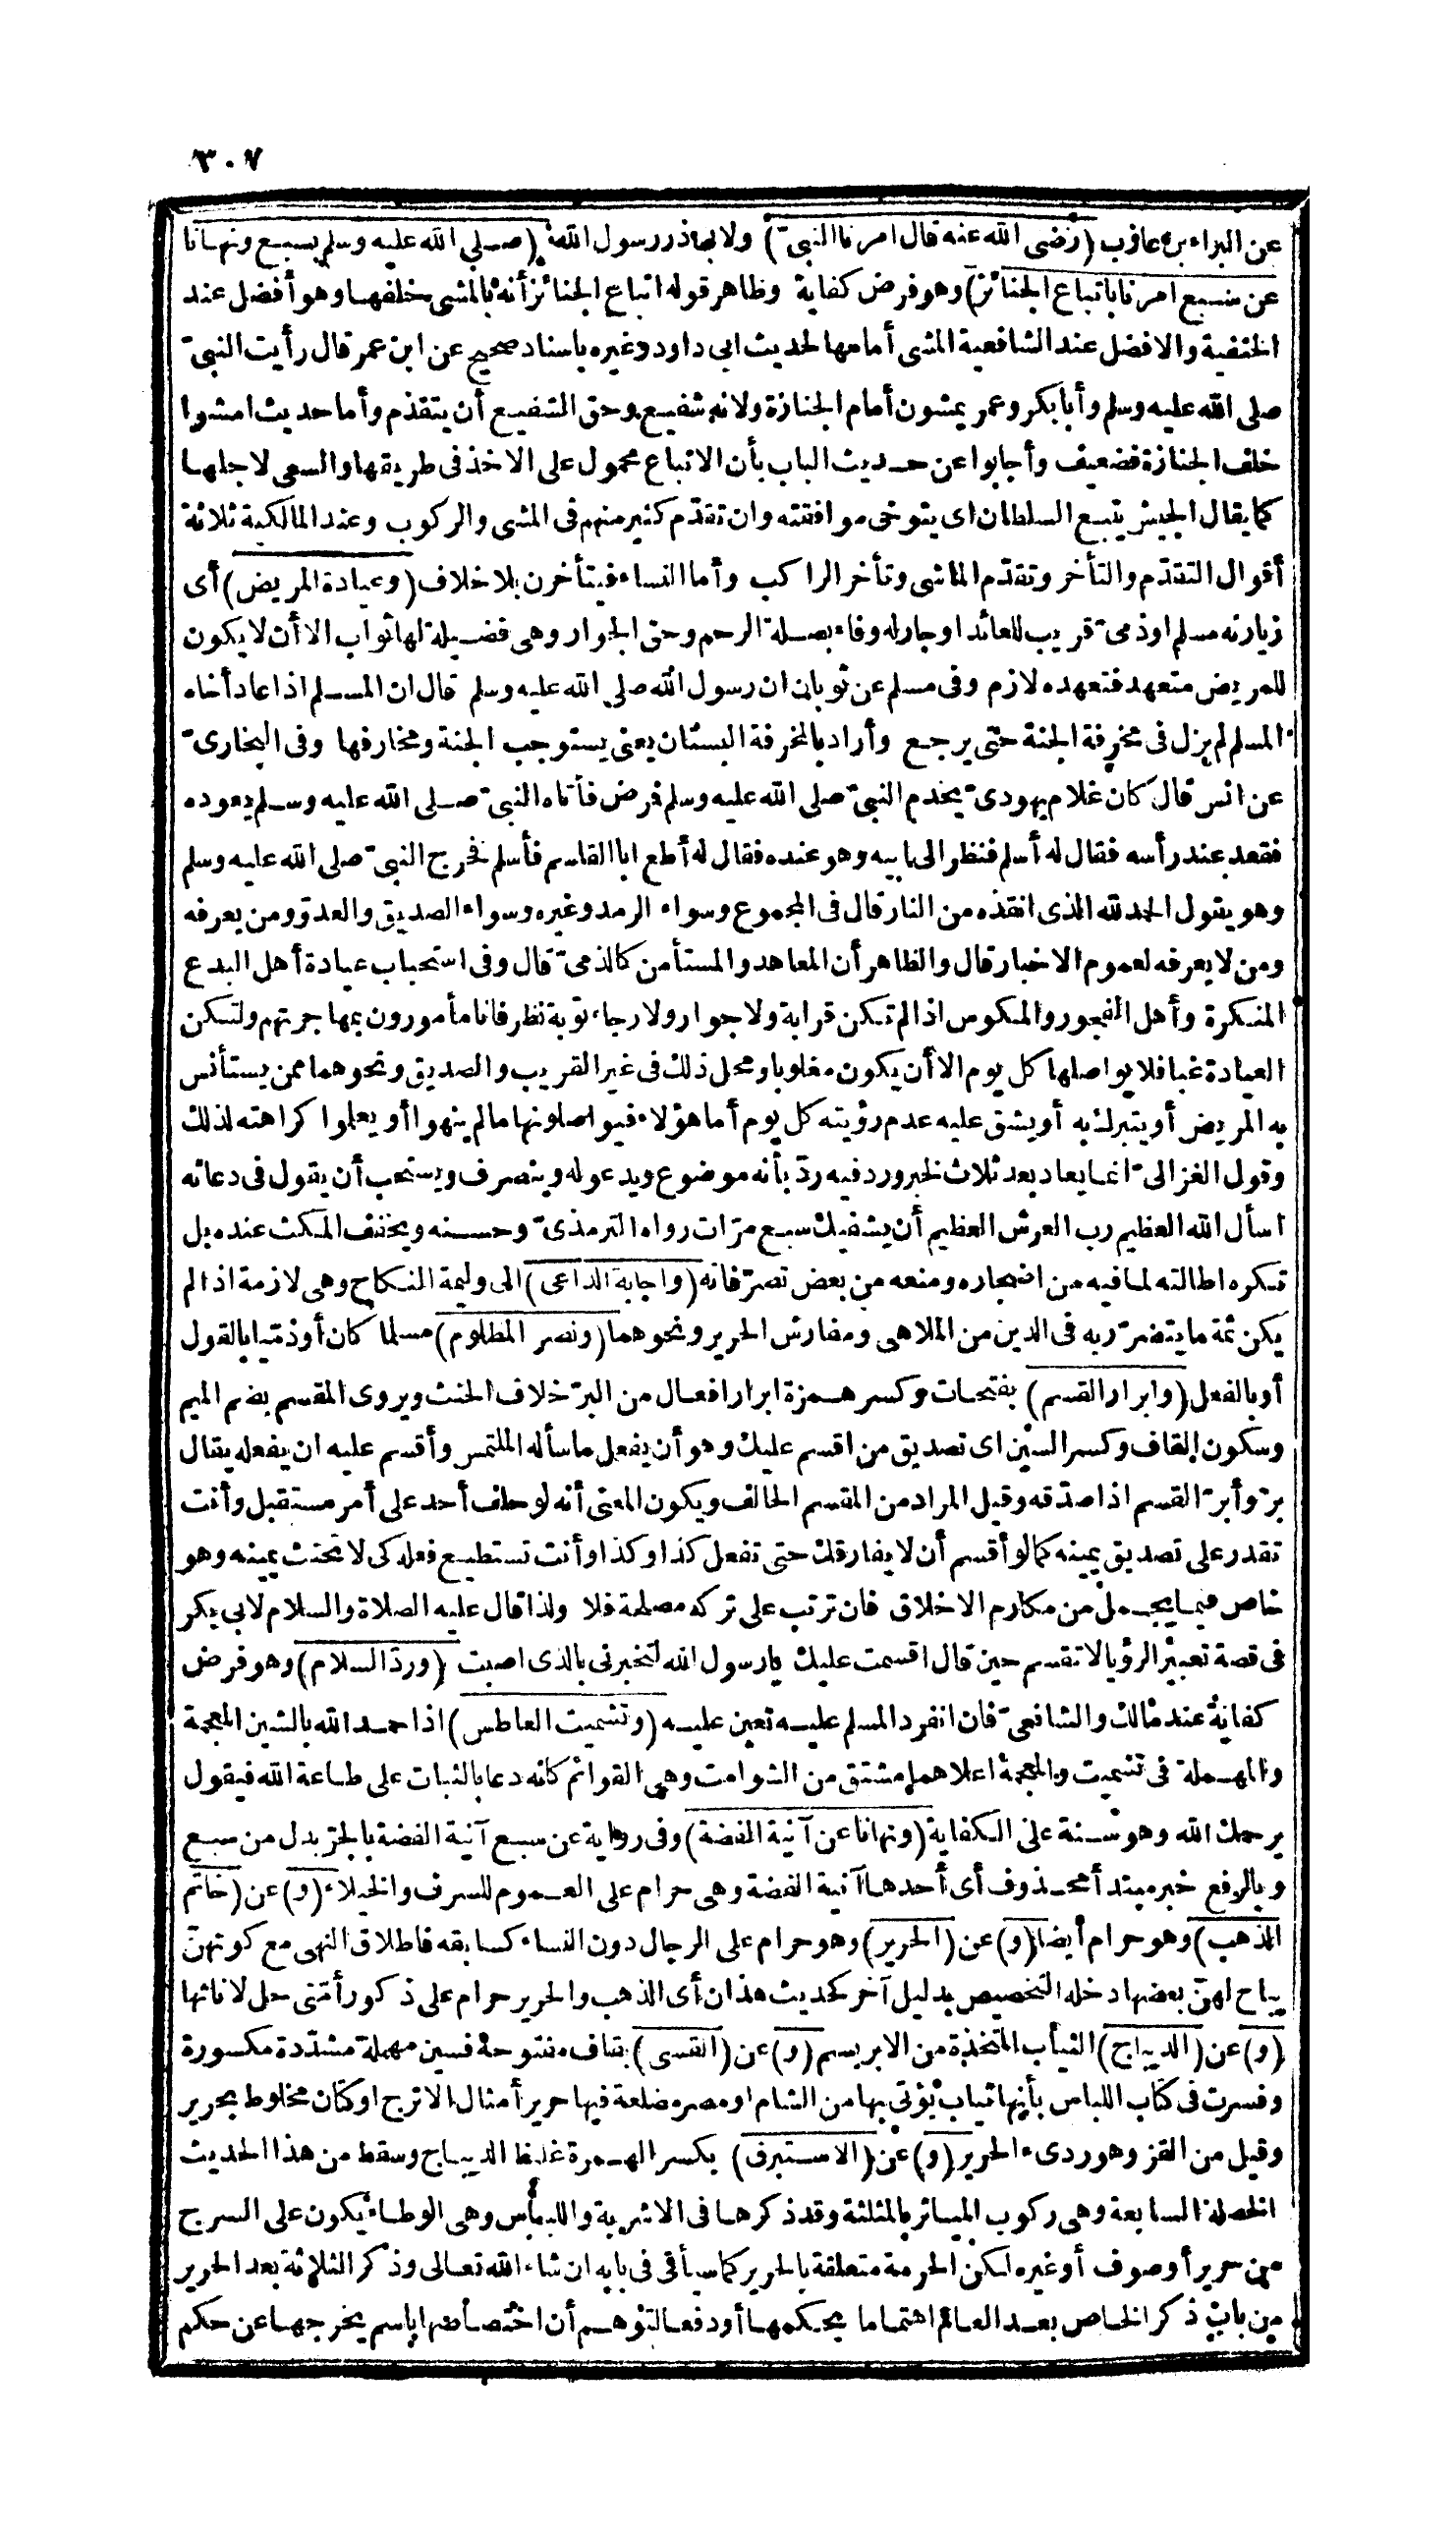 ٣٠٧
عن البراء بن عازب (رضى الله عنه قال امرنا النبىّ) ولابى ذر رسول الله (صلى الله عليه وسلم بسبع ونهانا
عن سبع امرنا باتباع الجنائز) وهو فرض كفاية وظاهر قوله اتباع الجنائز أنه بالمشى خلفها وهو أفضل عند
الحنفية والافضل عند الشافعية المشى أمامها لحديث ابى داود وغيره باسناد صحيح عن ابن عمر قال رأيت النبىّ
صلى الله عليه وسلم وأبا بكر وعمر يمشون أمام الجنازة ولانه شفيع وحق الشفيع أن يتقدّم وأما حديث امشوا
خلف الجنازة فضعيف وأجابوا عن حديث الباب بأن الاتباع محمول على الاخذ فى طريقها والسعى لاجلها
كما يقال الجيش يتبع السلطان اى يتوخى موافقته وان تقدّم كثير منهم فى المشى والركوب وعند المالكية ثلاثة
أقوال التقدّم والتأخر وتقدّم الماشى وتأخر الراكب وأما النساء فيتأخرن بلا خلاف (وعيادة المريض) أى
زيارته مسلم اوذمىّ قريب للعائد او جار له وفاء بصلة الرحم وحق الجوار وهى فضيلة لها ثواب الا أن لا يكون
للمريض متعهد فتعهده لازم وفى مسلم عن ثوبان ان رسول الله صلى الله عليه وسلم قال ان المسلم اذا عاد أخاه
المسلم لم يزل فى مخرفة الجنة حتى يرجع وأراد بالمخرفة البستان يعنى يستوجب الجنة ومخارفها وفى البخارىّ
عن انس قال كان غلام يهودىّ يخدم النبىّ صلى الله عليه وسلم فمرض فأتاه النبىّ صلى الله عليه وسلم يعوده
فقعد عند رأسه فقال له أسلم فنظر الى ابيه وهو عنده فقال له أطع ابا القاسم فأسلم فخرج النبىّ صلى الله عليه وسلم
وهو يقول الحمد لله الذى انقذه من النار قال فى المجموع وسواء الرمد وغيره وسواء الصديق والعدوّ ومن يعرفه
ومن لا يعرفه لعموم الاخبار قال والظاهر أن المعاهد والمستأمن كالذمىّ قال وفى استحباب عيادة أهل البدع
المنكرة وأهل الفجور والمكوس اذا لم تكن قرابة ولا جوار ولا رجاء توبة نظر فانا مأمورون بمهاجرتهم ولتكن
العيادة غبا فلا يواصلها كل يوم الا أن يكون مغلوبا ومحل ذلك فى غير القريب والصديق ونحوهما ممن يستأنس
به المريض أو يتبرك به أو يشق عليه عدم رؤيته كل يوم أما هؤلاء فيواصلونها ما لم ينهوا أو يعلموا كراهته لذلك
وقول الغزالىّ انما يعاد بعد ثلاث لخبر ورد فيه ردّ بأنه موضوع ويدعو له وينصرف ويستحب أن يقول فى دعائه
اسأل الله العظيم رب العرش العظيم أن يشفيك سبع مرّات رواه الترمذىّ وحسنه ويخفف المكث عنده بل
تكره اطالته لما فيه من اضجاره ومنعه من بعض تصرّفاته (واجابة الداعى) الى وليمة النكاح وهى لازمة اذا لم
يكن ثمة ما يتضرّر به فى الدين من الملاهى ومفارش الحرير ونحوهما (ونصر المظلوم) مسلما كان أو ذمّيا بالقول
أو بالفعل (وابرار القسم) بفتحات وكسر همزة ابرار افعال من البرّ خلاف الحنث ويروى المقسم بضم الميم
وسكون القاف وكسر السين اى تصديق من اقسم عليك وهو أن يفعل ما سأله الملتمس وأقسم عليه ان يفعله يقال
برّ وأبرّ القسم اذا صدّقه وقيل المراد من المقسم الحالف ويكون المعنى أنه لو حلف أحد على أمر مستقبل وأنت
تقدر على تصديق يمينه كما لو أقسم أن لا يفارقك حتى تفعل كذا وكذا وأنت تستطيع فعله كى لا يحنث يمينه وهو
خاص فيما يجمل من مكارم الاخلاق فان ترتب على تركه مصلحة فلا ولذا قال عليه الصلاة والسلام لابى بكر
فى قصة تعبير الرؤيا لا تقسم حين قال اقسمت عليك يارسول الله لتخبرنى بالذى اصبت (وردّ السلام) وهو فرض
كفاية عند مالك والشافعىّ فان انفرد المسلم عليه تعين عليه (وتشميت العاطس) اذا حمد الله بالشين المعجمة
والمهملة فى تشميت والمعجمة اعلاهما مشتق من الشوامت وهى القوائم كانه دعا بالثبات على طاعة الله فيقول
يرحمك الله وهو سنة على الكفاية (ونهانا عن آنية الفضة) وفى رواية عن سبع آنية الفضة بالجرّ بدل من سبع
وبالرفع خبر مبتدأ محذوف أى أحدها آنية الفضة وهى حرام على العموم للسرف والخيلاء (و) عن (خاتم
الذهب) وهو حرام أيضا (و) عن (الحرير) وهو حرام على الرجال دون النساء كسابقه فاطلاق النهى مع كونهنّ
يباح لهنّ بعضها دخله التخصيص بدليل آخر كحديث هذان أى الذهب والحرير حرام على ذكور أمّتى حل لاناثها
(و) عن (الديباج) الثياب المتخذة من الابريسم (و) عن (القسى) بقاف مفتوحة فسين مهملة مشدّدة مكسورة
وفسرت فى كتاب اللباس بأنها ثياب يؤتى بها من الشام او مصر مضلعة فيها حرير أمثال الاترج او كتان مخلوط بحرير
وقيل من القز وهو ردىء الحرير (و) عن (الاستبرق) بكسر الهمزة غليظ الديباج وسقط من هذا الحديث
الخصلة السابعة وهى ركوب المياثر بالمثلثة وقد ذكرها فى الاشربة واللباس وهى الوطاء يكون على السرج
من حرير أو صوف أو غيره لكن الحرمة متعلقة بالحرير كما سيأتى فى بابه ان شاء الله تعالى وذكر الثلاثة بعد الحرير
من باب ذكر الخاص بعد العام اهتماما بحكمها أو دفعا لتوهم أن اختصاصها باسم يخرجها عن حكم